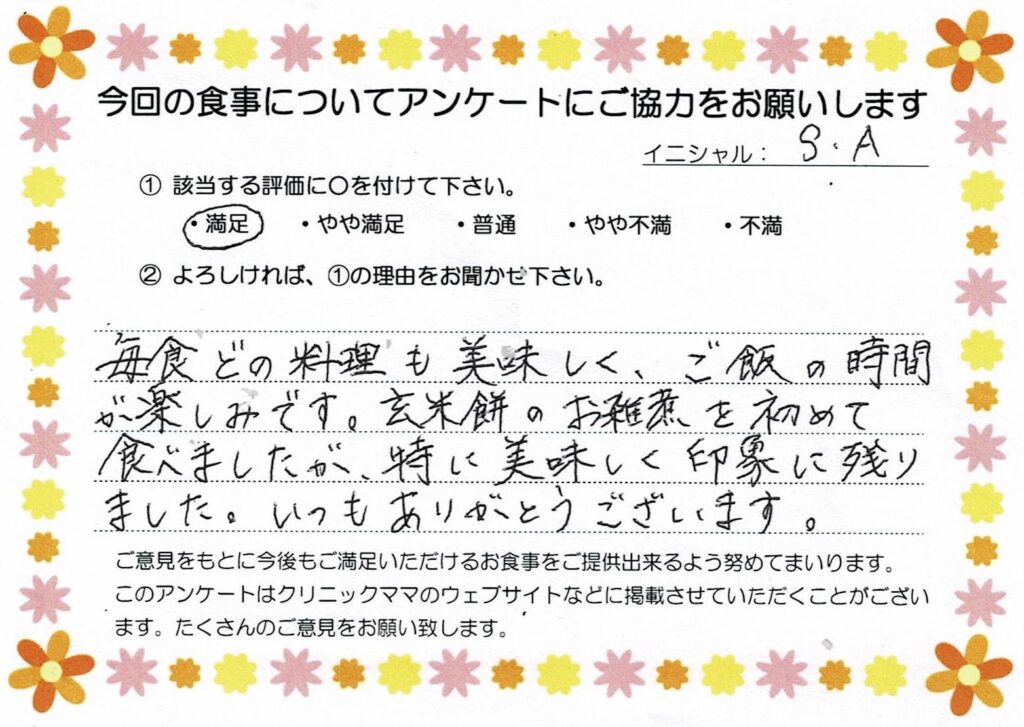 今回の食事についてアンケートにご協力をお願いします
イニシャル： S.A
① 該当する評価に〇を付けて下さい。
・満足 ・やや満足 ・普通 ・やや不満 ・不満
② よろしければ、①の理由をお聞かせ下さい。
毎食どの料理も美味しく、ご飯の時間
が楽しみです。玄米餅のお雑煮を初めて
食べましたが、特に美味しく印象に残り
ました。いつもありがとうございます。
ご意見をもとに今後もご満足いただけるお食事をご提供出来るよう努めてまいります。
このアンケートはクリニックママのウェブサイトなどに掲載させていただくことがござい
ます。たくさんのご意見をお願い致します。